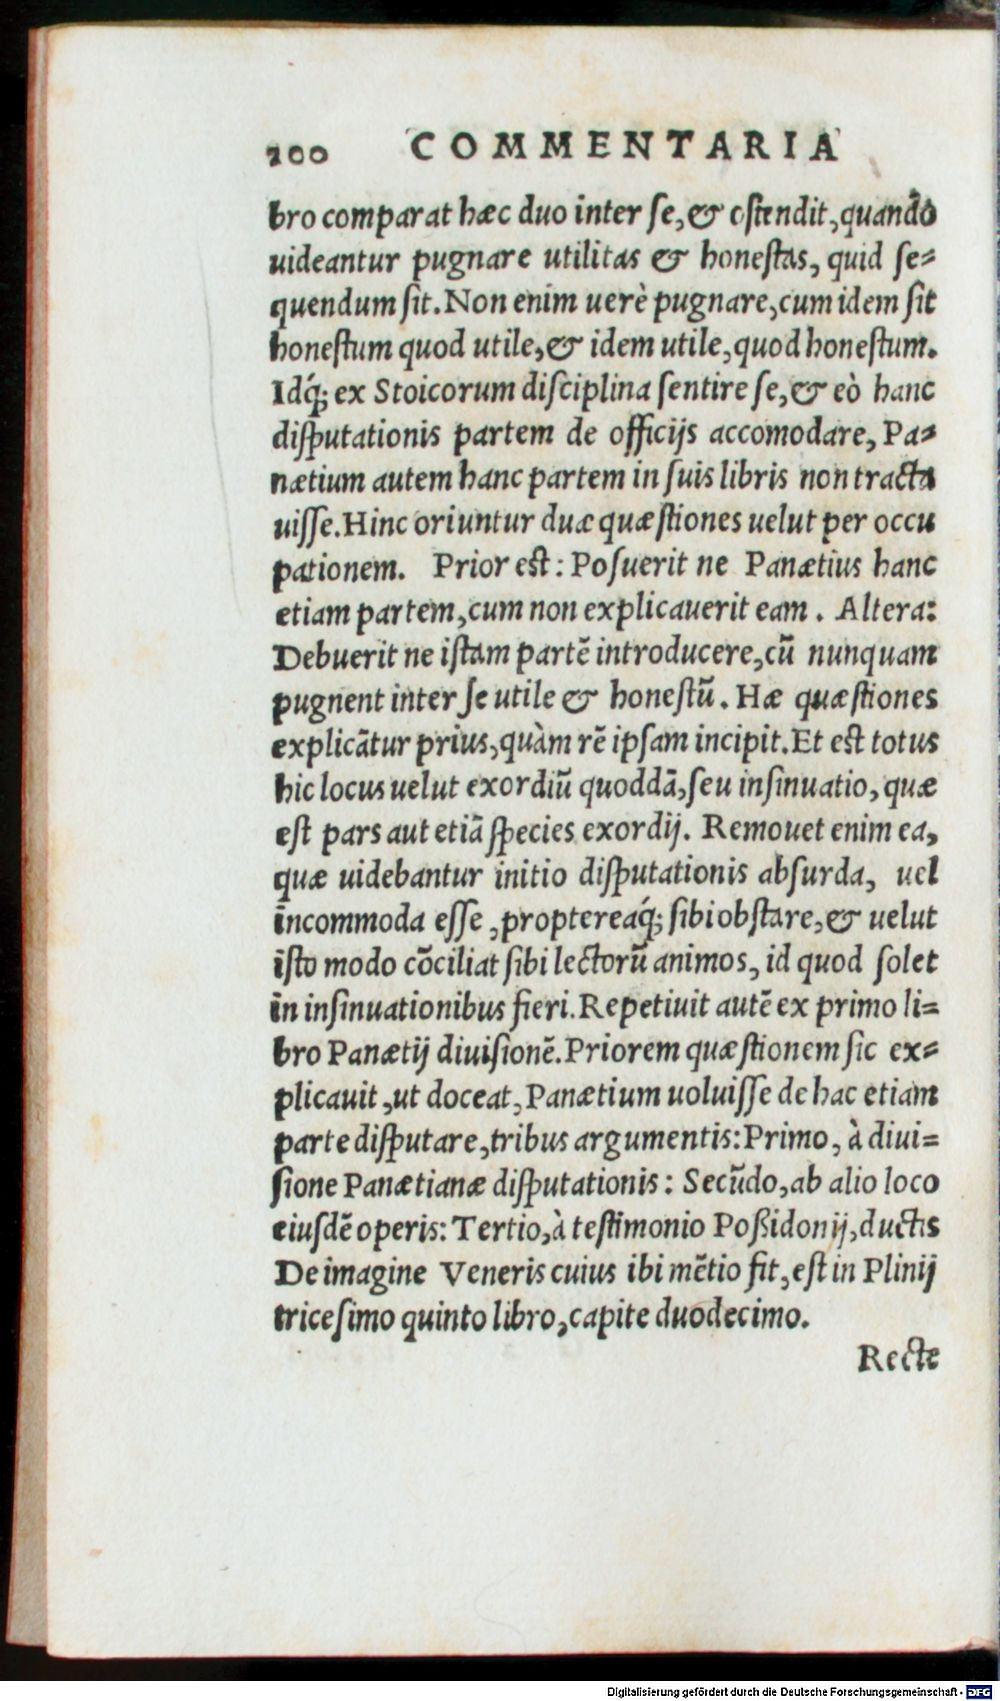 200 COMMENTARIA
bro comparat hæc duo inter se, & ostendit, quando
uideantur pugnare utilitas & honestas, quid se=
quendum sit. Non enim uerè pugnare, cum idem sit
honestum quod utile, & idem utile, quod honestum.
Idq́; ex Stoicorum disciplina sentire se, & eò hanc
disputationis partem de officijs accomodare, Pa=
nætium autem hanc partem in suis libris non tracta
uisse. Hinc oriuntur duæ quæstiones uelut per occu
pationem. Prior est: Posuerit ne Panætius hanc
etiam partem, cum non explicauerit eam. Altera:
Debuerit ne istam partē introducere, cū nunquam
pugnent inter se utile & honestū. Hæ quæstiones
explicātur prius, quàm rē ipsam incipit. Et est totus
hic locus uelut exordiū quoddā, seu insinuatio, quæ
est pars aut etiā species exordij. Remouet enim ea,
quæ uidebantur initio disputationis absurda, uel
incommoda esse, proptereaq́; sibi obstare, & uelut
isto modo cōciliat sibi lectorū animos, id quod solet
in insinuationibus fieri. Repetiuit autē ex primo li=
bro Panætij diuisionē. Priorem quæstionem sic ex=
plicauit, ut doceat, Panætium uoluisse de hac etiam
parte disputare, tribus argumentis: Primo, à diui=
sione Panætianæ disputationis: Secūdo, ab alio loco
eiusdē operis: Tertio, à testimonio Poßidonij, ductis
De imagine Veneris cuius ibi mētio fit, est in Plinij
tricesimo quinto libro, capite duodecimo.
Recte
Digitalisierung gefördert durch die Deutsche Forschungsgemeinschaft - DFG